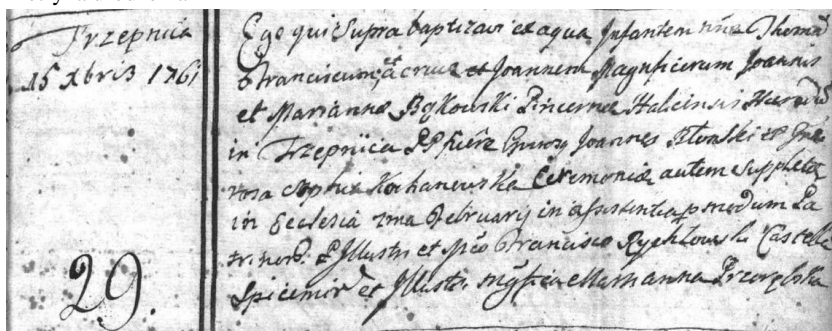 Trzepnica
15 Xbris 1761
29.
Ego qui Supra baptizavi ex aqua Infantem nõe Thomã
Franciscum, et a cruce et Joannem Magnificorum Joannis
et Mariannæ Bąkowski Pincernæ Haliciensis Hæredũ
in Trzepnica PP fuere Gnrosus Joannes et Gne
rosa Sophia Kochanowska Ceremoniæ autem Suppletæ
in Ecclesia 2ma February in assistentia p modum Pa
trinor. Illustri et Mco Francisco Rychłowski Castell
Spicimir et Illustri Mgfica Marianna Przerębska